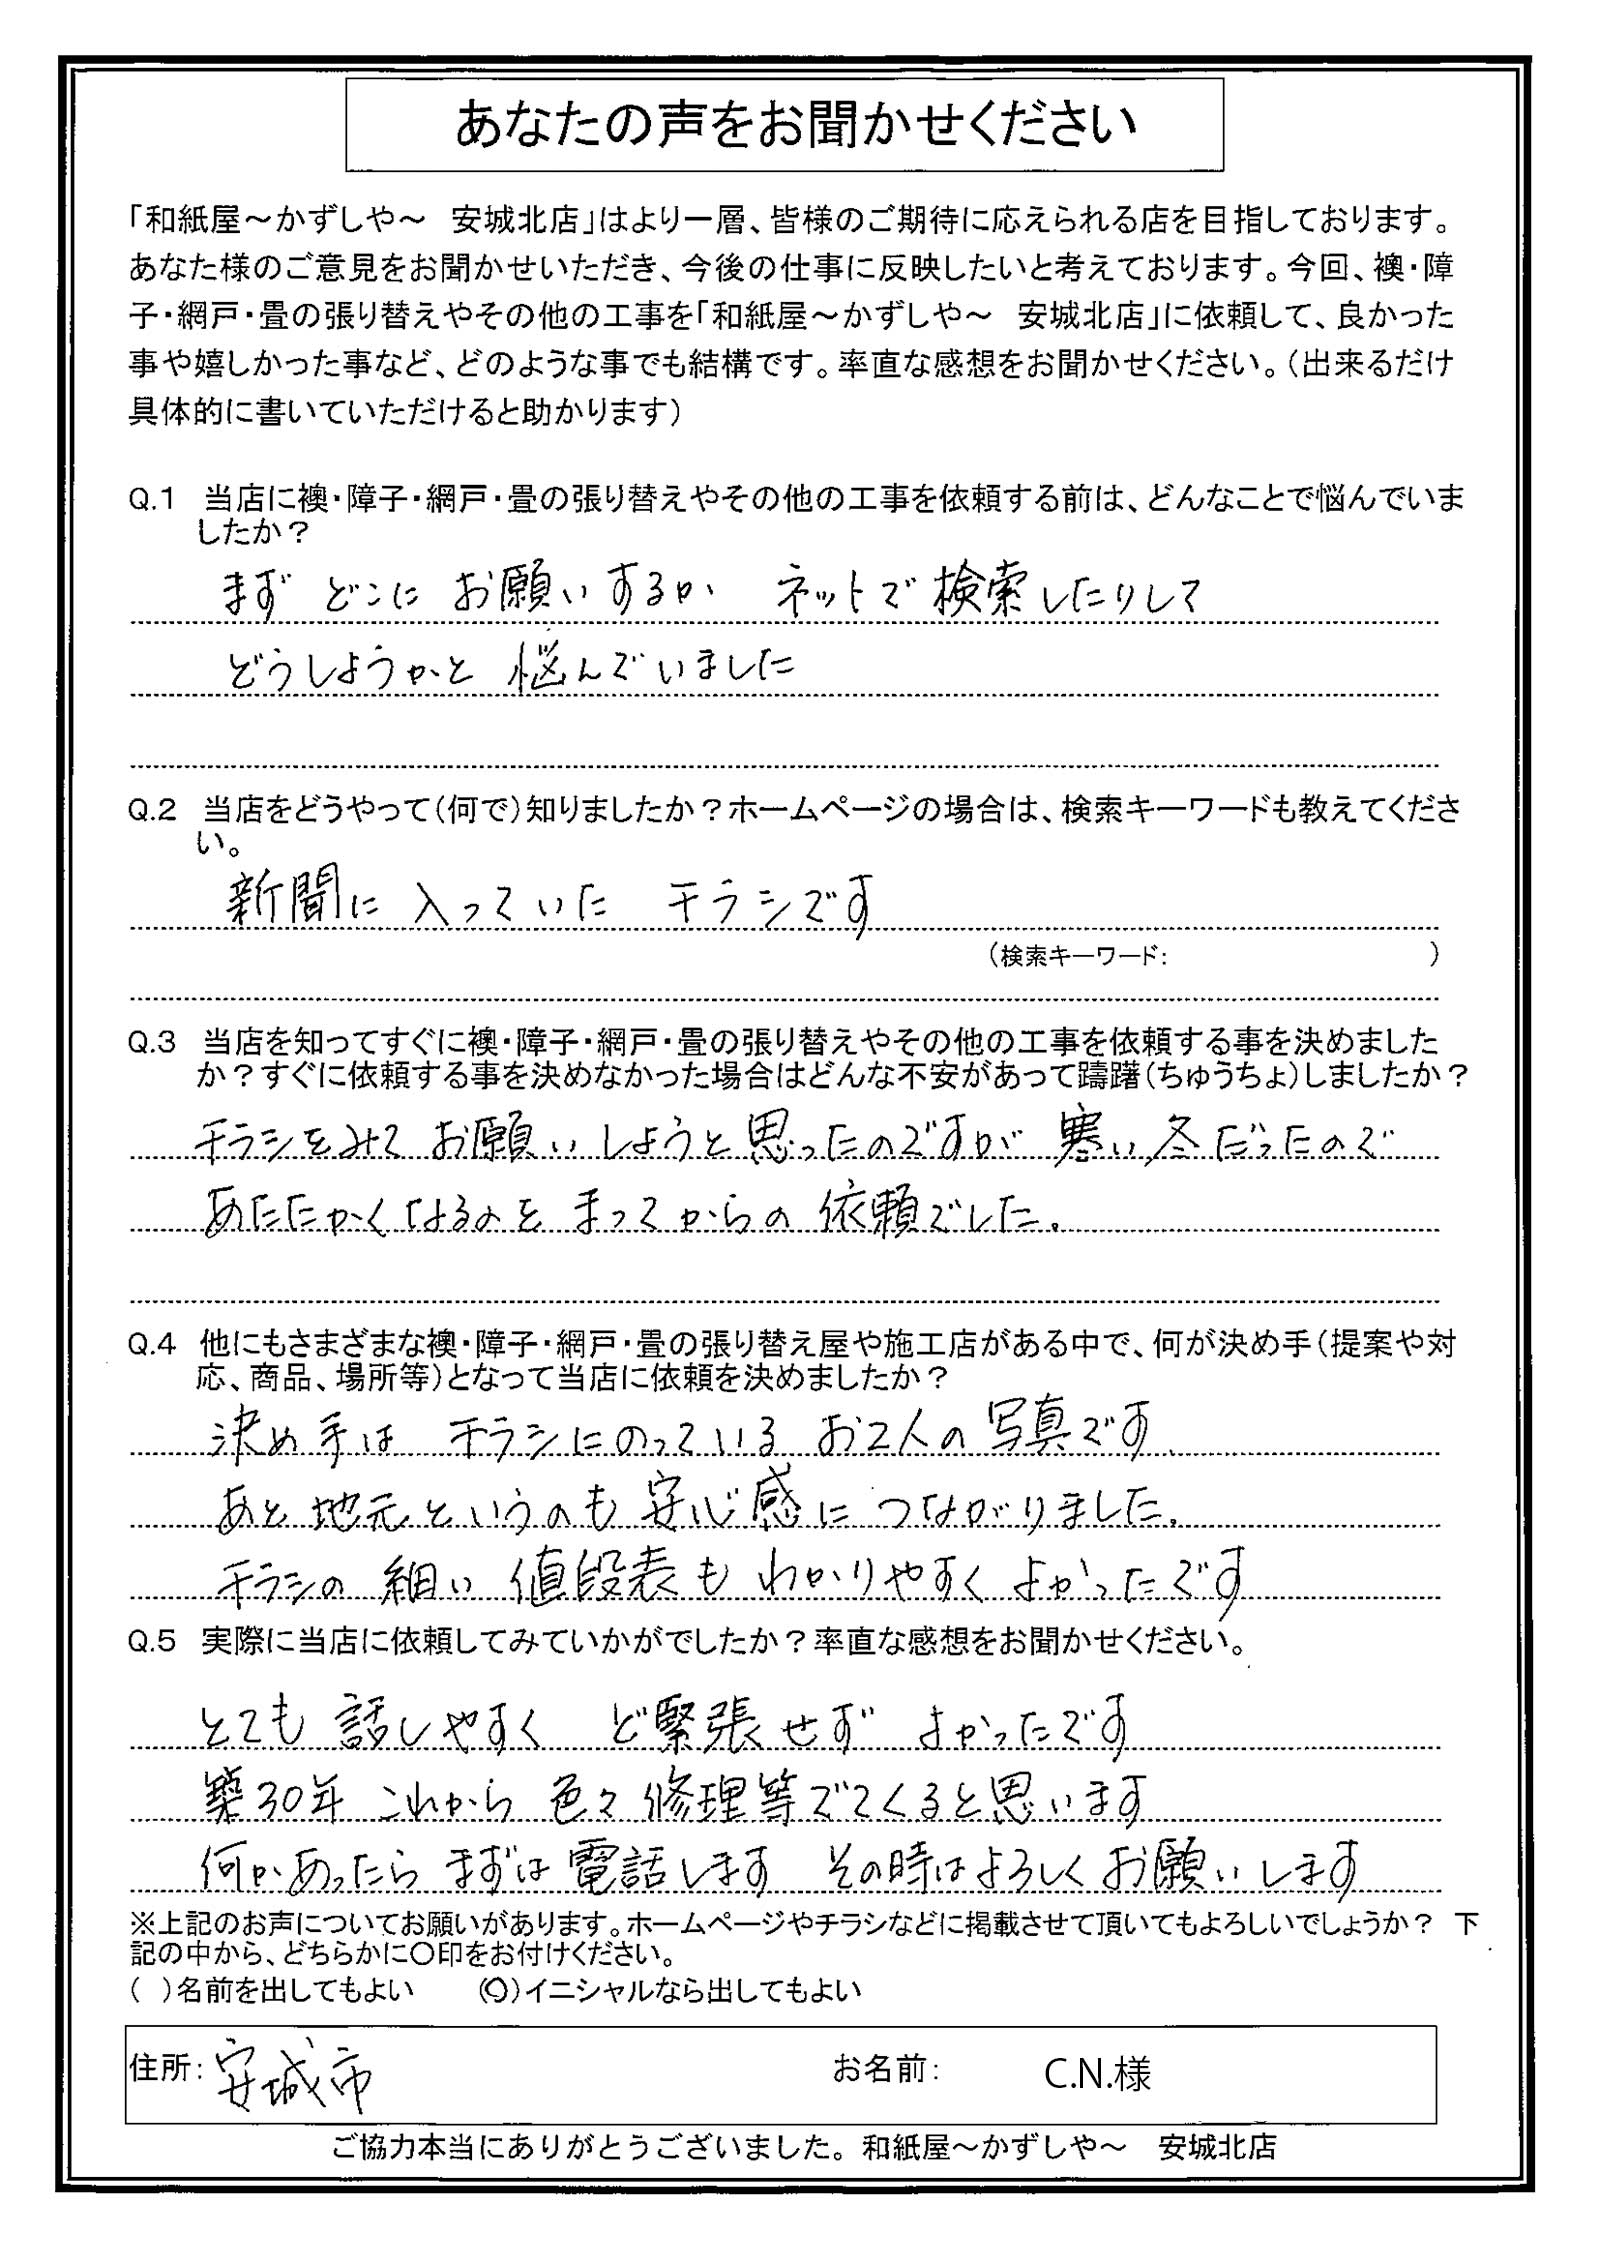 あなたの声をお聞かせください
「和紙屋～かずしや～　安城北店」はより一層、皆様のご期待に応えられる店を目指しております。
あなた様のご意見をお聞かせいただき、今後の仕事に反映したいと考えております。今回、襖・障
子・網戸・畳の張り替えやその他の工事を「和紙屋～かずしや～　安城北店」に依頼して、良かった
事や嬉しかった事など、どのような事でも結構です。率直な感想をお聞かせください。（出来るだけ
具体的に書いていただけると助かります）
Q.1　当店に襖・障子・網戸・畳の張り替えやその他の工事を依頼する前は、どんなことで悩んでいま
したか？
まず どこに お願いするか　ネットで検索したりして
どうしようかと 悩んでいました
Q.2　当店をどうやって（何で）知りましたか？ホームページの場合は、検索キーワードも教えてくださ
い。
新聞に 入っていた　チラシです
（検索キーワード：　　　　　　　　　　）
Q.3　当店を知ってすぐに襖・障子・網戸・畳の張り替えやその他の工事を依頼する事を決めました
か？すぐに依頼する事を決めなかった場合はどんな不安があって躊躇（ちゅうちょ）しましたか？
チラシをみて お願いしようと思ったのですが 寒い冬だったので
あたたかくなるのを まってからの 依頼でした。
Q.4　他にもさまざまな襖・障子・網戸・畳の張り替え屋や施工店がある中で、何が決め手（提案や対
応、商品、場所等）となって当店に依頼を決めましたか？
決め手は チラシにのっている お2人の写真です
あと 地元というのも 安心感に つながりました。
チラシの 細い 値段表も わかりやすく よかったです
Q.5　実際に当店に依頼してみていかがでしたか？率直な感想をお聞かせください。
とても 話しやすく　ど緊張せず　よかったです
築30年 これから 色々修理等でてくると思います
何かあったら まずは電話します　その時はよろしくお願いします
※上記のお声についてお願いがあります。ホームページやチラシなどに掲載させて頂いてもよろしいでしょうか？　下
記の中から、どちらかに〇印をお付けください。
（　）名前を出してもよい　　（〇）イニシャルなら出してもよい
住所：安城市　　お名前：　C.N.様
ご協力本当にありがとうございました。和紙屋～かずしや～　安城北店